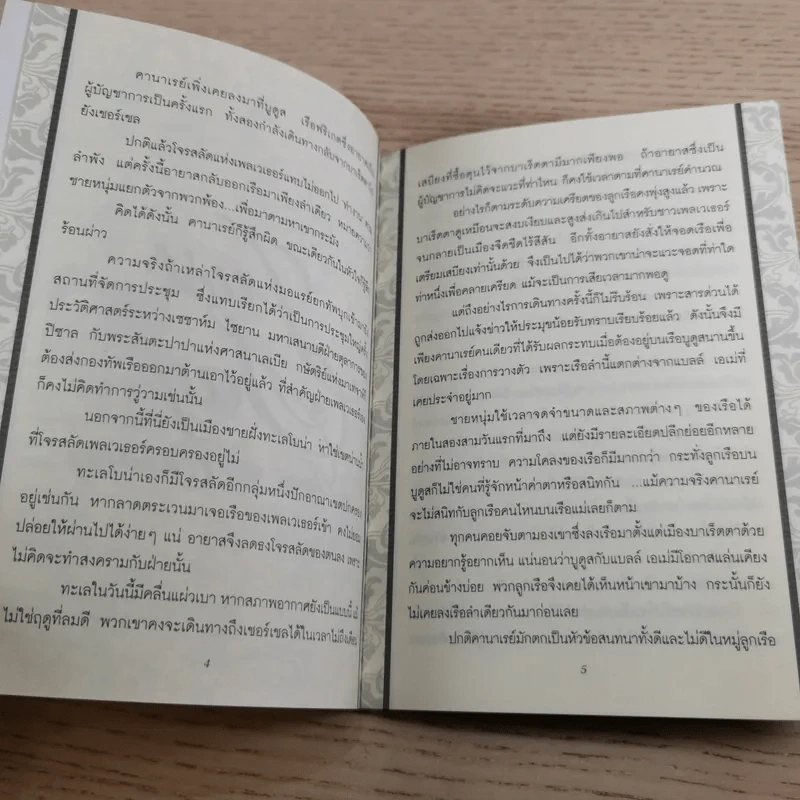 คานาเรย์เพิ่งเคยลงมาที่บูดูส เรือฟริเกตซึ่งอายาส
ผู้บัญชาการเป็นครั้งแรก ทั้งสองกำลังเดินทางกลับจากบาเร็ตตา
ยังเชอร์เชล
ปกติแล้วโจรสลัดแห่งเพลเวเธอร์แทบไม่ออกไป
ลำพัง แต่ครั้งนี้อายาสกลับออกเรือมาเพียงลำเดียว หมายความ
ชายหนุ่มแยกตัวจากพวกพ้อง...เพื่อมาตามหาเขากระมัง
คิดได้ดังนั้น คานาเรย์ก็รู้สึกผิด ขณะเดียวกันในหัวใจก็
ร้อนผ่าว
ความจริงถ้าเหล่าโจรสลัดแห่งมอแรย์ยกทัพบุกเข้ามา
สถานที่จัดการประชุม ซึ่งแทบเรียกได้ว่าเป็นการประชุมใหญ่ครั้ง
ประวัติศาสตร์ระหว่างเซซาห์ม ไซยาน มหาเสนาบดีฝ่ายตุลาการของ
ปิซาล กับพระสันตะปาปาแห่งศาสนาเลเบีย กษัตริย์แห่ง
ต้องส่งกองทัพเรือออกมาด้านเอาไว้อยู่แล้ว ที่สำคัญฝ่ายเพลเวเธอร์
ก็คงไม่คิดทำการวู่วามเช่นนั้น
นอกจากนี้ที่นี่ยังเป็นเมืองชายฝั่งทะเลโบน่า หาใช่เขตน่านน้ำ
ที่โจรสลัดเพลเวเธอร์ครอบครองอยู่ไม่
ทะเลโบน่าเองก็มีโจรสลัดอีกกลุ่มหนึ่งปักอาณาเขตปกครอง
อยู่เช่นกัน หากลาดตระเวนมาเจอเรือของเพลเวเธอร์เข้า คงไม่ยอม
ปล่อยให้ผ่านไปได้ง่ายๆ แน่ อายาสจึงลดธงโจรสลัดของตนลง เพราะ
ไม่คิดจะทำสงครามกับฝ่ายนั้น
ทะเลในวันนี้มีคลื่นแผ่วเบา หากสภาพอากาศยังเป็นแบบนี้ แม้
ไม่ใช่ฤดูที่ลมดี พวกเขาคงจะเดินทางถึงเชอร์เชลได้ในเวลาไม่ถึงเดือน
4
เสบียงที่ซื้อตุนไว้จากบาเร็ตตามีมากเพียงพอ ถ้าอายาสซึ่งเป็น
ผู้บัญชาการไม่คิดจะแวะที่ท่าไหน ก็คงใช้เวลาตามที่คานาเรย์คำนวณ
อย่างไรก็ตามระดับความเครียดของลูกเรือคงพุ่งสูงแล้ว เพราะ
บาเร็ตตาดูเหมือนจะสงบเงียบและสูงส่งเกินไปสำหรับชาวเพลเวเธอร์
จนกลายเป็นเมืองจืดชืดไร้สีสัน อีกทั้งอายาสยังสั่งให้จอดเรือเพื่อ
เตรียมเสบียงเท่านั้นด้วย จึงเป็นไปได้ว่าพวกเขาน่าจะแวะจอดที่ท่าใด
ท่าหนึ่งเพื่อคลายเครียด แม้จะเป็นการเสียเวลามากพอดู
แต่ถึงอย่างไรการเดินทางครั้งนี้ก็ไม่รีบร้อน เพราะสารด่วนได้
ถูกส่งออกไปแจ้งข่าวให้ประมุขน้อยรับทราบเรียบร้อยแล้ว ดังนั้นจึงมี
เพียงคานาเรย์คนเดียวที่ได้รับผลกระทบเมื่อต้องอยู่บนเรือบูดูสนานขึ้น
โดยเฉพาะเรื่องการวางตัว เพราะเรือลำนี้แตกต่างจากแบลล์ เอเม่ที่
เคยประจำอยู่มาก
ชายหนุ่มใช้เวลาจดจำขนาดและสภาพต่างๆ ของเรือได้
ภายในสองสามวันแรกที่มาถึง แต่ยังมีรายละเอียดปลีกย่อยอีกหลาย
อย่างที่ไม่อาจทราบ ความโคลงของเรือก็มีมากกว่า กระทั่งลูกเรือบน
บูดูสก็ไม่ใช่คนที่รู้จักหน้าค่าตาหรือสนิทกัน ...แม้ความจริงคานาเรย์
จะไม่สนิทกับลูกเรือคนไหนบนเรือแม่เลยก็ตาม
ทุกคนคอยจับตามองเขาซึ่งลงเรือมาตั้งแต่เมืองบาเร็ตตาด้วย
ความอยากรู้อยากเห็น แน่นอนว่าบูดูสกับแบลล์ เอเม่มีโอกาสแล่นเคียง
กันค่อนข้างบ่อย พวกลูกเรือจึงเคยได้เห็นหน้าเขามาบ้าง กระนั้นก็ยัง
ไม่เคยลงเรือลำเดียวกันมาก่อนเลย
ปกติคานาเรย์มักตกเป็นหัวข้อสนทนาทั้งดีและไม่ดีในหมู่ลูกเรือ
5